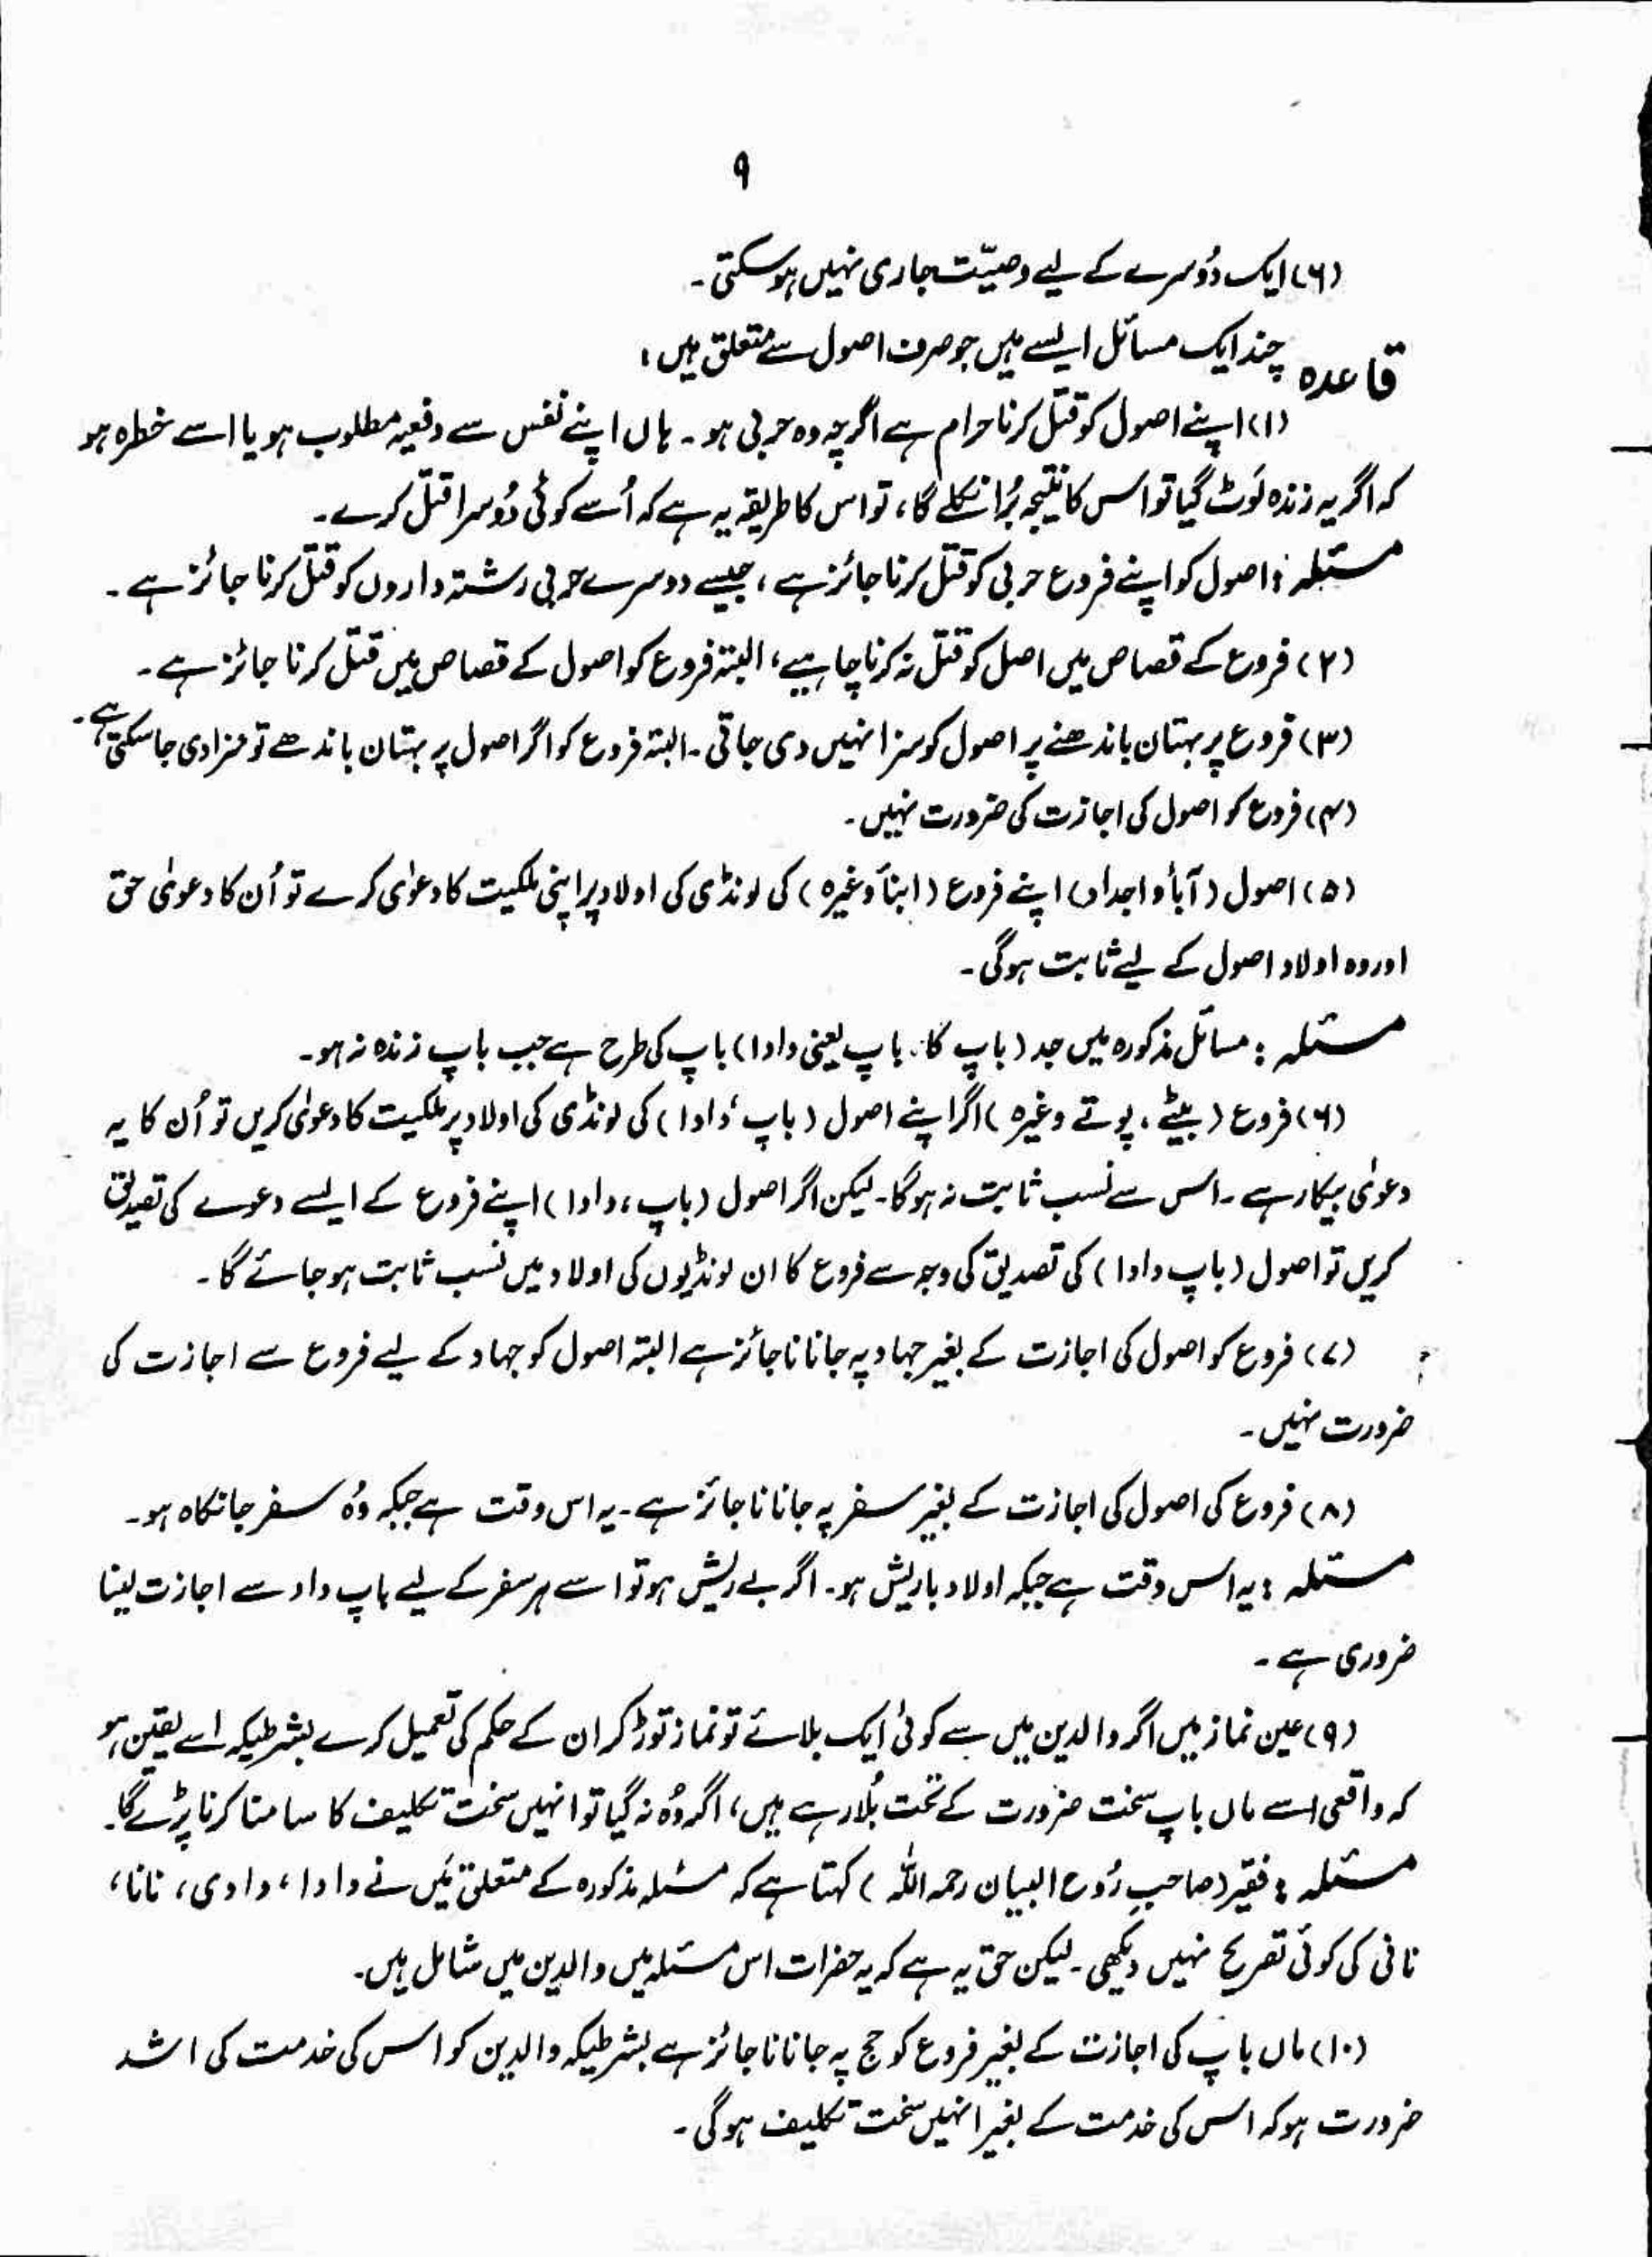 ۹
(۶) ایک دُوسرے کے لیے وصیّت جاری نہیں ہوسکتی۔
قاعدہ چند ایک مسائل ایسے ہیں جو صرف اصول سے متعلق ہیں:
(۱) اپنے اصول کو قتل کرنا حرام ہے اگرچہ وہ حربی ہو۔ ہاں اپنے نفس سے دفعیہ مطلوب ہو یا اسے خطرہ ہو
کہ اگر یہ زندہ لَوٹ گیا تو اس کا نتیجہ بُرا نکلے گا، تو اس کا طریقہ یہ ہے کہ اُسے کوئی دُوسرا قتل کرے۔
مسئلہ : اصول کو اپنے فروع حربی کو قتل کرنا جائز ہے، جیسے دوسرے حربی رشتہ داروں کو قتل کرنا جائز ہے۔
(۲) فروع کے قصاص میں اصل کو قتل نہ کرنا چاہیے، البتہ فروع کو اصول کے قصاص میں قتل کرنا جائز ہے۔
(۳) فروع پر بہتان باندھنے پر اصول کو سزا نہیں دی جاتی۔ البتہ فروع کو اگر اصول پر بہتان باندھے تو سزا دی جاسکتی ہے۔
(۴) فروع کو اصول کی اجازت کی ضرورت نہیں۔
(۵) اصول (آبأ و اجداد) اپنے فروع (ابنأ وغیرہ) کی لونڈی کی اولاد پر اپنی ملکیت کا دعوٰی کرے تو اُن کا دعویٰ حق
اور وہ اولاد اصول کے لیے ثابت ہوگی۔
مسئلہ : مسائل مذکورہ میں جد (باپ کا باپ یعنی دادا) باپ کی طرح ہے جب باپ زندہ نہ ہو۔
(۶) فروع (بیٹے، پوتے وغیرہ) اگر اپنے اصول (باپ، دادا) کی لونڈی کی اولاد پر ملکیت کا دعوٰی کریں تو اُن کا یہ
دعوٰی بیکار ہے۔ اس سے نسب ثابت نہ ہوگا۔ لیکن اگر اصول (باپ، دادا) اپنے فروع کے ایسے دعوے کی تصدیق
کریں تو اصول (باپ دادا) کی تصدیق کی وجہ سے فروع کا ان لونڈیوں کی اولاد میں نسب ثابت ہوجائے گا۔
(۷) فروع کو اصول کی اجازت کے بغیر جہاد پہ جانا ناجائز ہے البتہ اصول کو جہاد کے لیے فروع سے اجازت کی
ضرورت نہیں۔
(۸) فروع کی اصول کی اجازت کے بغیر سفر پہ جانا ناجائز ہے۔ یہ اس وقت ہے جبکہ وُہ سفر جانکاہ ہو۔
مسئلہ : یہ اس وقت ہے جبکہ اولاد باریش ہو۔ اگر بے ریش ہو تو اسے ہر سفر کے لیے باپ داد سے اجازت لینا
ضروری ہے۔
(۹) عین نماز میں اگر والدین میں سے کوئی ایک بلائے تو نماز توڑ کر ان کے حکم کی تعمیل کرے بشرطیکہ اسے یقین ہو
کہ واقعی اسے ماں باپ سخت ضرورت کے تحت بُلا رہے ہیں، اگر وُہ نہ گیا تو انہیں سخت تکلیف کا سامنا کرنا پڑے گا۔
مسئلہ : فقیر (صاحبِ رُوح البیان رحمہ اللہ) کہتا ہے کہ مسئلہ مذکورہ کے متعلق مَیں نے دادا، دادی، نانا،
نانی کی کوئی تصریح نہیں دیکھی۔ لیکن حق یہ ہے کہ یہ حضرات اس مسئلہ میں والدین میں شامل ہیں۔
(۱۰) ماں باپ کی اجازت کے بغیر فروع کو حج پہ جانا ناجائز ہے بشرطیکہ والدین کو اس کی خدمت کی اشد
ضرورت ہو کہ اس کی خدمت کے بغیر انہیں سخت تکلیف ہوگی۔